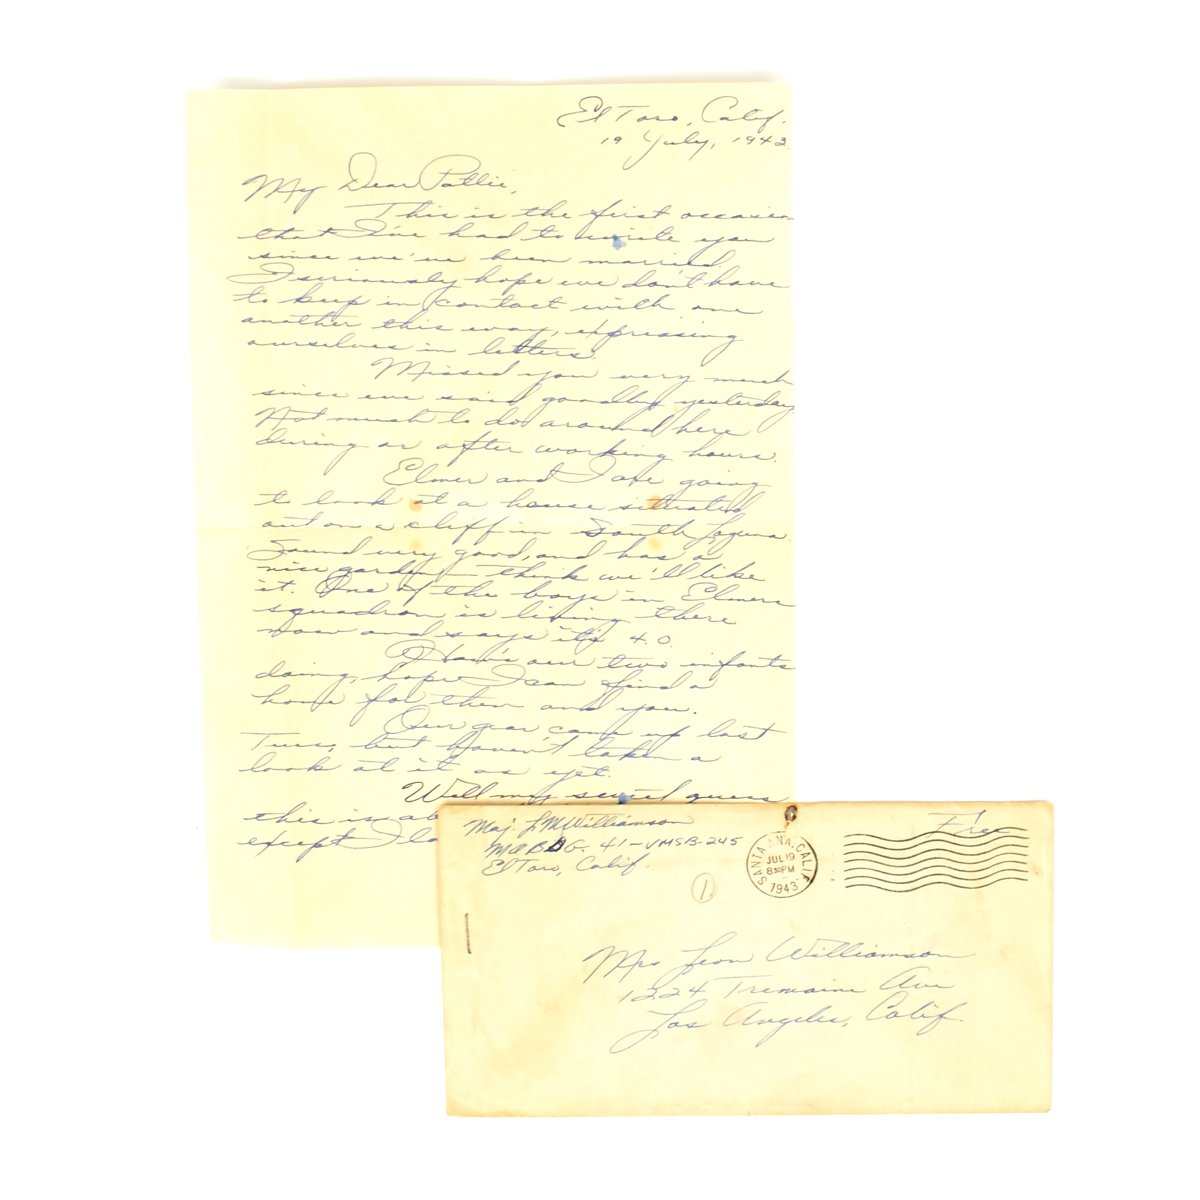 El Toro, Calif.
19 July, 1943
My Dear Pattie,
This is the first occasion
that I've had to write you
since we've been married,
I seriously hope we don't have
to keep in contact with one
another this way, expressing
ourselves in letters.
Missed you very much
since we said goodby yesterday.
Not much to do around here
during or after working hours.
Elmer and I are going
to look at a house situated
out on a cliff in South Laguna.
Sound very good, and has a
nice garden - think we'll like
it. One of the boys in Elmers
squadron is living there
now and says its 4.0.
How's our two infants
doing, hope I can find a
home for them and you.
Our gear came up last
Tues, but haven't taken a
look at it as yet.
Well my sweet guess
this is ab
except I lo
Maj. L M Williamson
41-VMSB-245
El Toro, Calif.
1
SANTA ANA, CALIF.
JUL 19
8 30 PM
1943
Free
Mrs Leon Williamson
1224 Tremaine Ave
Los Angeles, Calif.